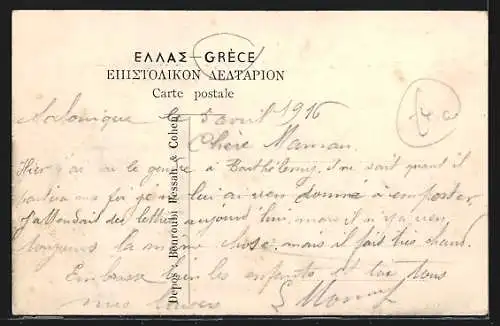 ΕΛΛΑΣ—GRÈCE
ΕΠΙΣΤΟΛΙΚΟΝ ΔΕΛΤΑΡΙΟΝ
Carte postale
Salonique le 5 avril 1916
Chère Maman
Hier j'ai vu le gendre à Barthélemy, il ne sait quand il
partira ma foi je ne lui ai rien donné à emporter
j'attendait des lettres aujourd'hui, mais il n'y a rien
toujours la même chose, mais il fait très chaud.
Embrasse bien les enfants et toi tous
mes
Depos: Bonroubi Pessah & Cohen